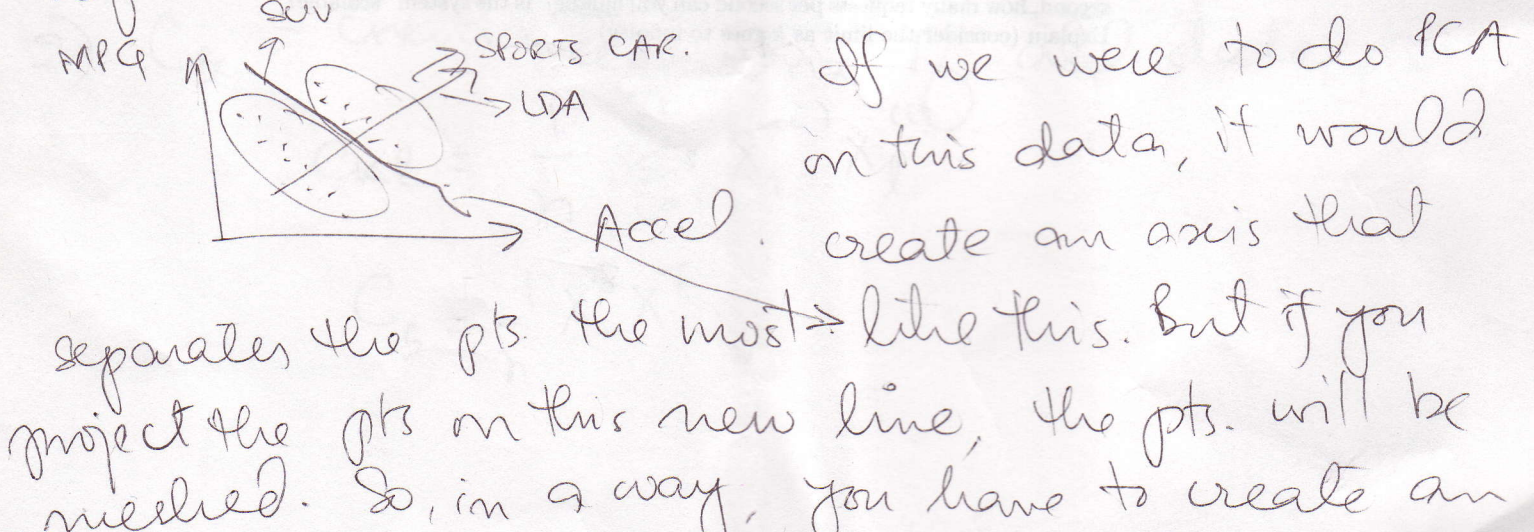 SUV
MPG
SPORTS CAR.
LDA
Accel.
If we were to do PCA
on this data, it would
create an axis that
separates the pts. the most → like this. But if you
project the pts on this new line, the pts. will be
meshed. So, in a way, you have to create an